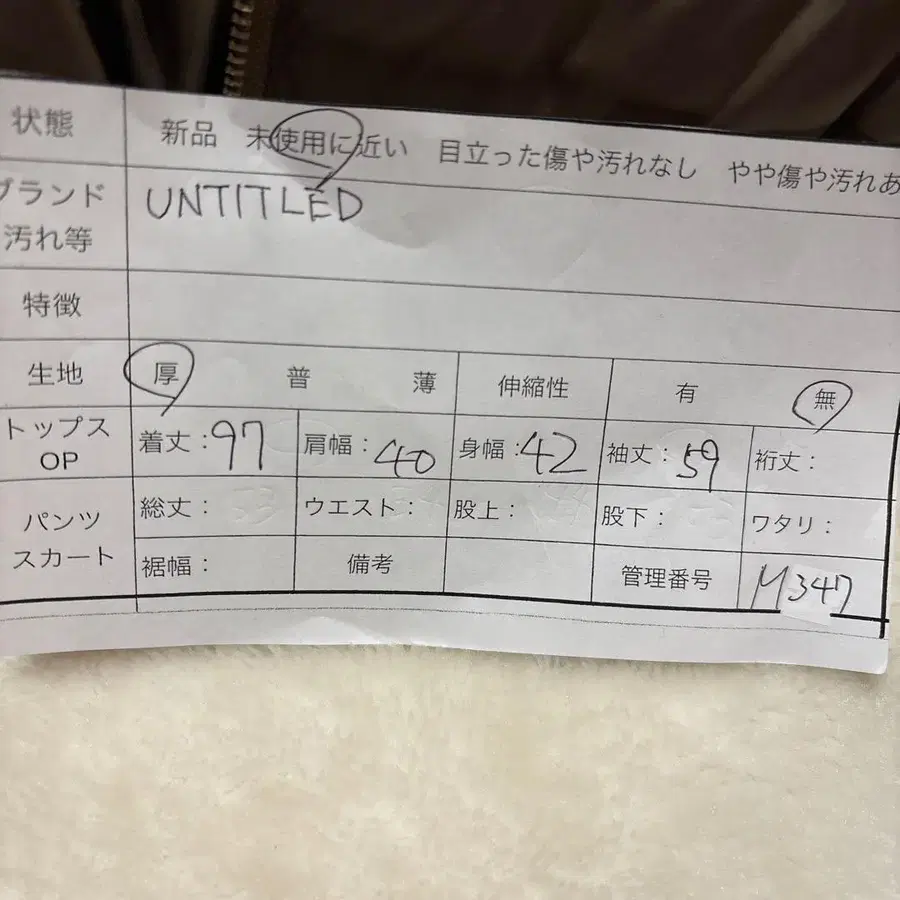 状態 新品 未使用に近い 目立った傷や汚れなし やや傷や汚れあ
ブランド UNTITLED
汚れ等
特徴
生地 厚 普 薄 伸縮性 有 無
トップス OP 着丈:97 肩幅:40 身幅:42 袖丈:59 裄丈:
パンツ スカート 総丈: ウエスト: 股上: 股下: ワタリ:
裾幅: 備考 管理番号 M347